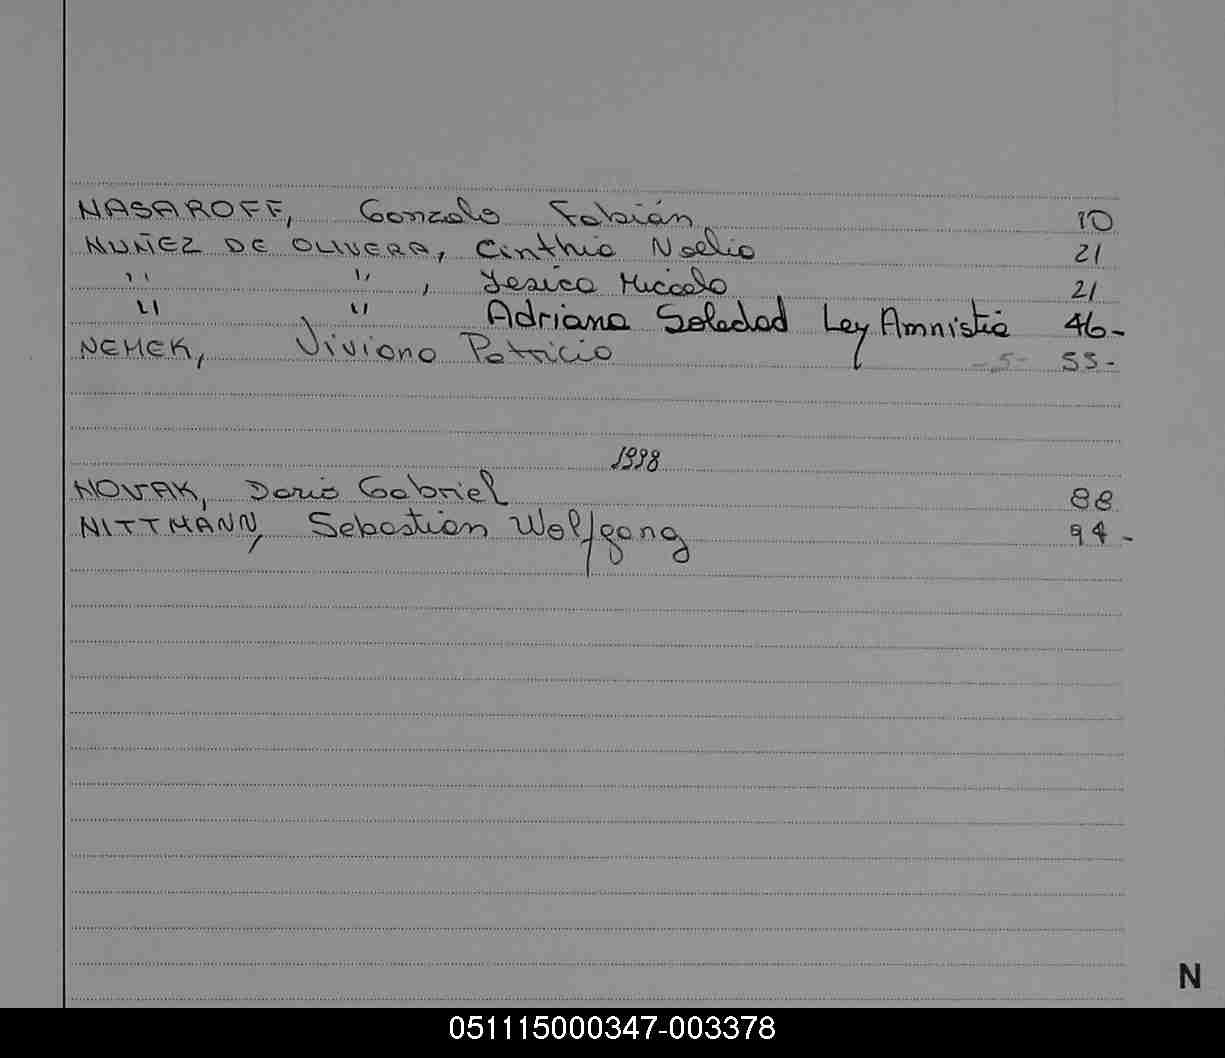 NASAROFF, Gonzalo Fabián 10
NUÑEZ DE OLIVERA, Cinthia Noelia 21
" " , Yesica Micaela 21
" " Adriana Soledad Ley Amnistia 46-
NEMEK, Viviana Patricia -5- 55-
1998
NOVAK, Dario Gabriel 88
NITTMANN, Sebastian Wolfgang 94-
N
051115000347-003378